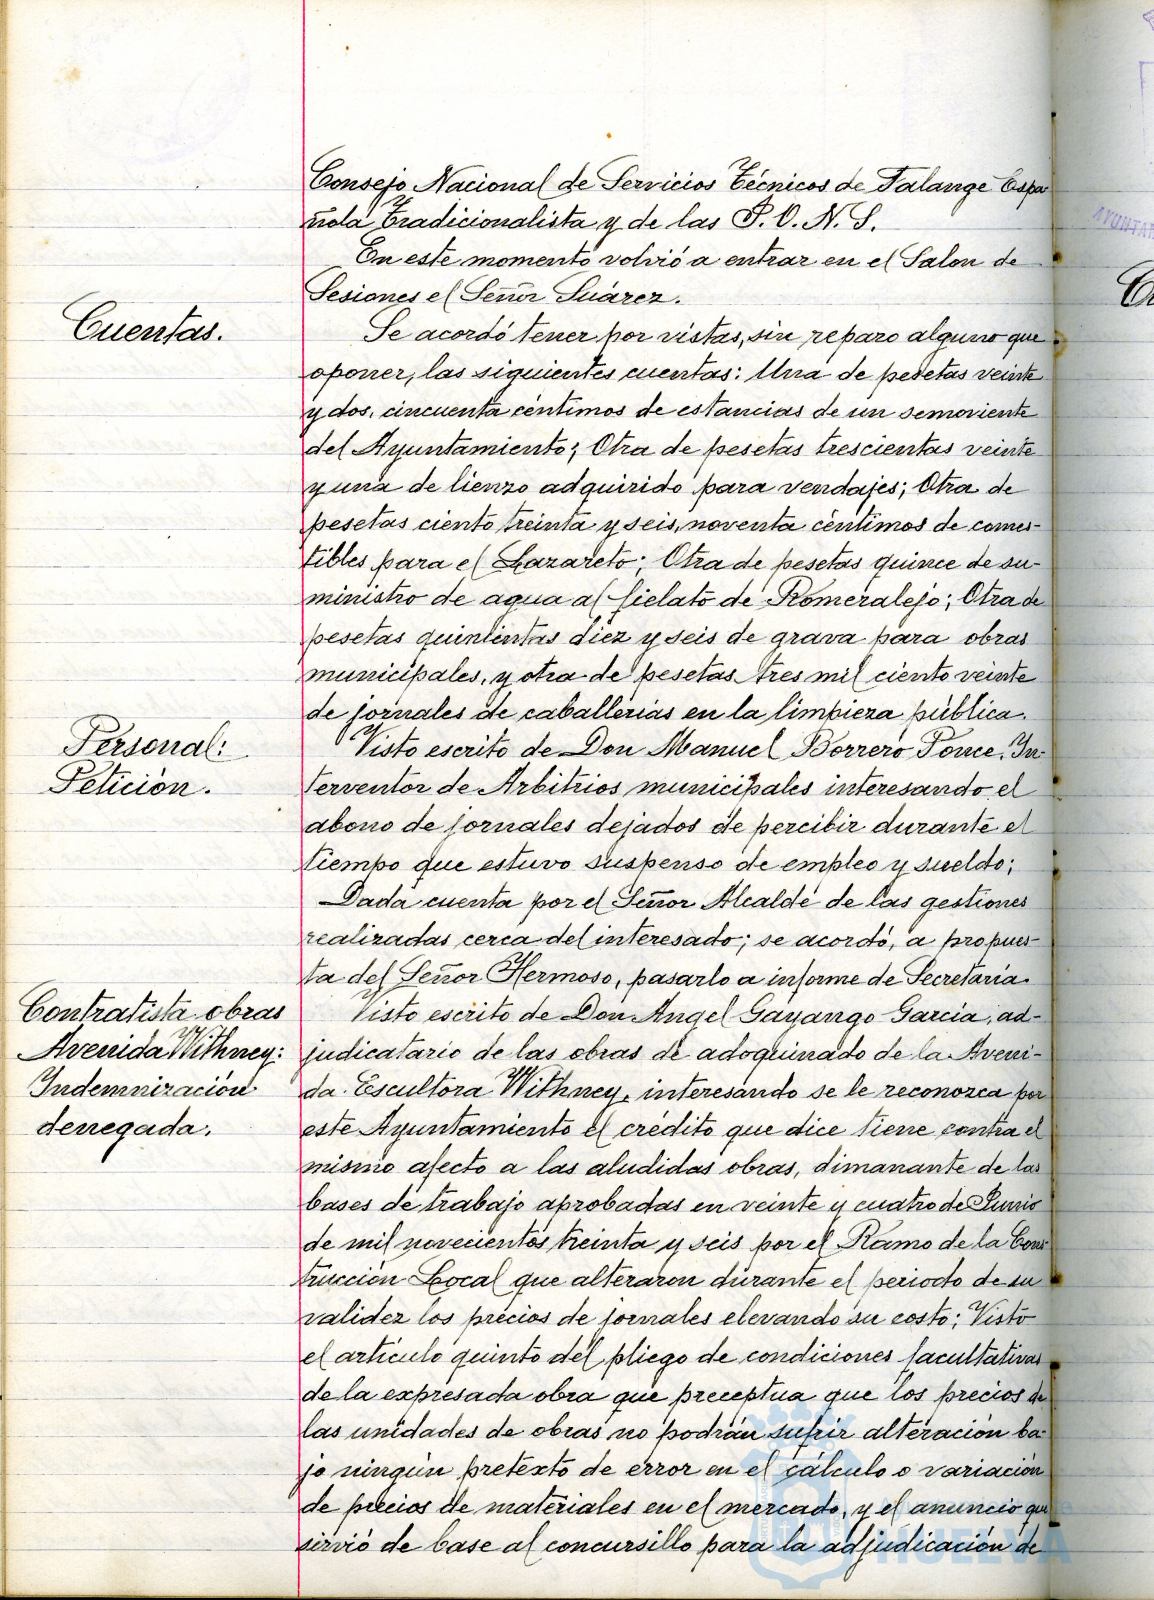 Consejo Nacional de Servicios Técnicos de Falange Espa
ñola Tradicionalista y de las J.O.N.S.
En este momento volvió a entrar en el Salon de
Sesiones el Señor Suárez.
Cuentas.
Se acordó tener por vistas, sin reparo alguno que
oponer, las siguientes cuentas: Una de pesetas veinte
y dos, cincuenta céntimos de estancias de un semoviente
del Ayuntamiento; Otra de pesetas trescientas veinte
y una de lienzo adquirido para vendajes; Otra de
pesetas ciento treinta y seis, noventa céntimos de comes-
tibles para el Lazareto; Otra de pesetas quince de su-
ministro de agua al fielato de Romeralejo; Otra de
pesetas quinientas diez y seis de grava para obras
municipales, y otra de pesetas tres mil ciento veinte
de jornales de caballerias en la limpieza pública.
Personal:
Petición.
Visto escrito de Don Manuel Borrero Ponce, In-
terventor de Arbitrios municipales interesando el
abono de jornales dejados de percibir durante el
tiempo que estuvo suspenso de empleo y sueldo;
Dada cuenta por el Señor Alcalde de las gestiones
realizadas cerca del interesado; se acordó, a propues-
ta del Señor Hermoso, pasarlo a informe de Secretaria.
Contratista obras
Avenida Withney:
Indemnización
denegada.
Visto escrito de Don Angel Gayango Garcia, ad-
judicatario de las obras de adoquinado de la Aveni-
da Escultora Withney, interesando se le reconozca por
este Ayuntamiento el crédito que dice tiene contra el
mismo afecto a las aludidas obras, dimanante de las
bases de trabajo aprobadas en veinte y cuatro de Junio
de mil novecientos treinta y seis por el Ramo de la Cons
trucción Local que alteraron durante el periodo de su
validez los precios de jornales elevando su costo; Visto
el artículo quinto del pliego de condiciones facultativas
de la expresada obra que preceptua que los precios de
las unidades de obras no podrán sufrir alteración ba-
jo ningún pretexto de error en el cálculo o variación
de precios de materiales en el mercado, y el anuncio que
sirvió de base al concursillo para la adjudicación de
HUELVA